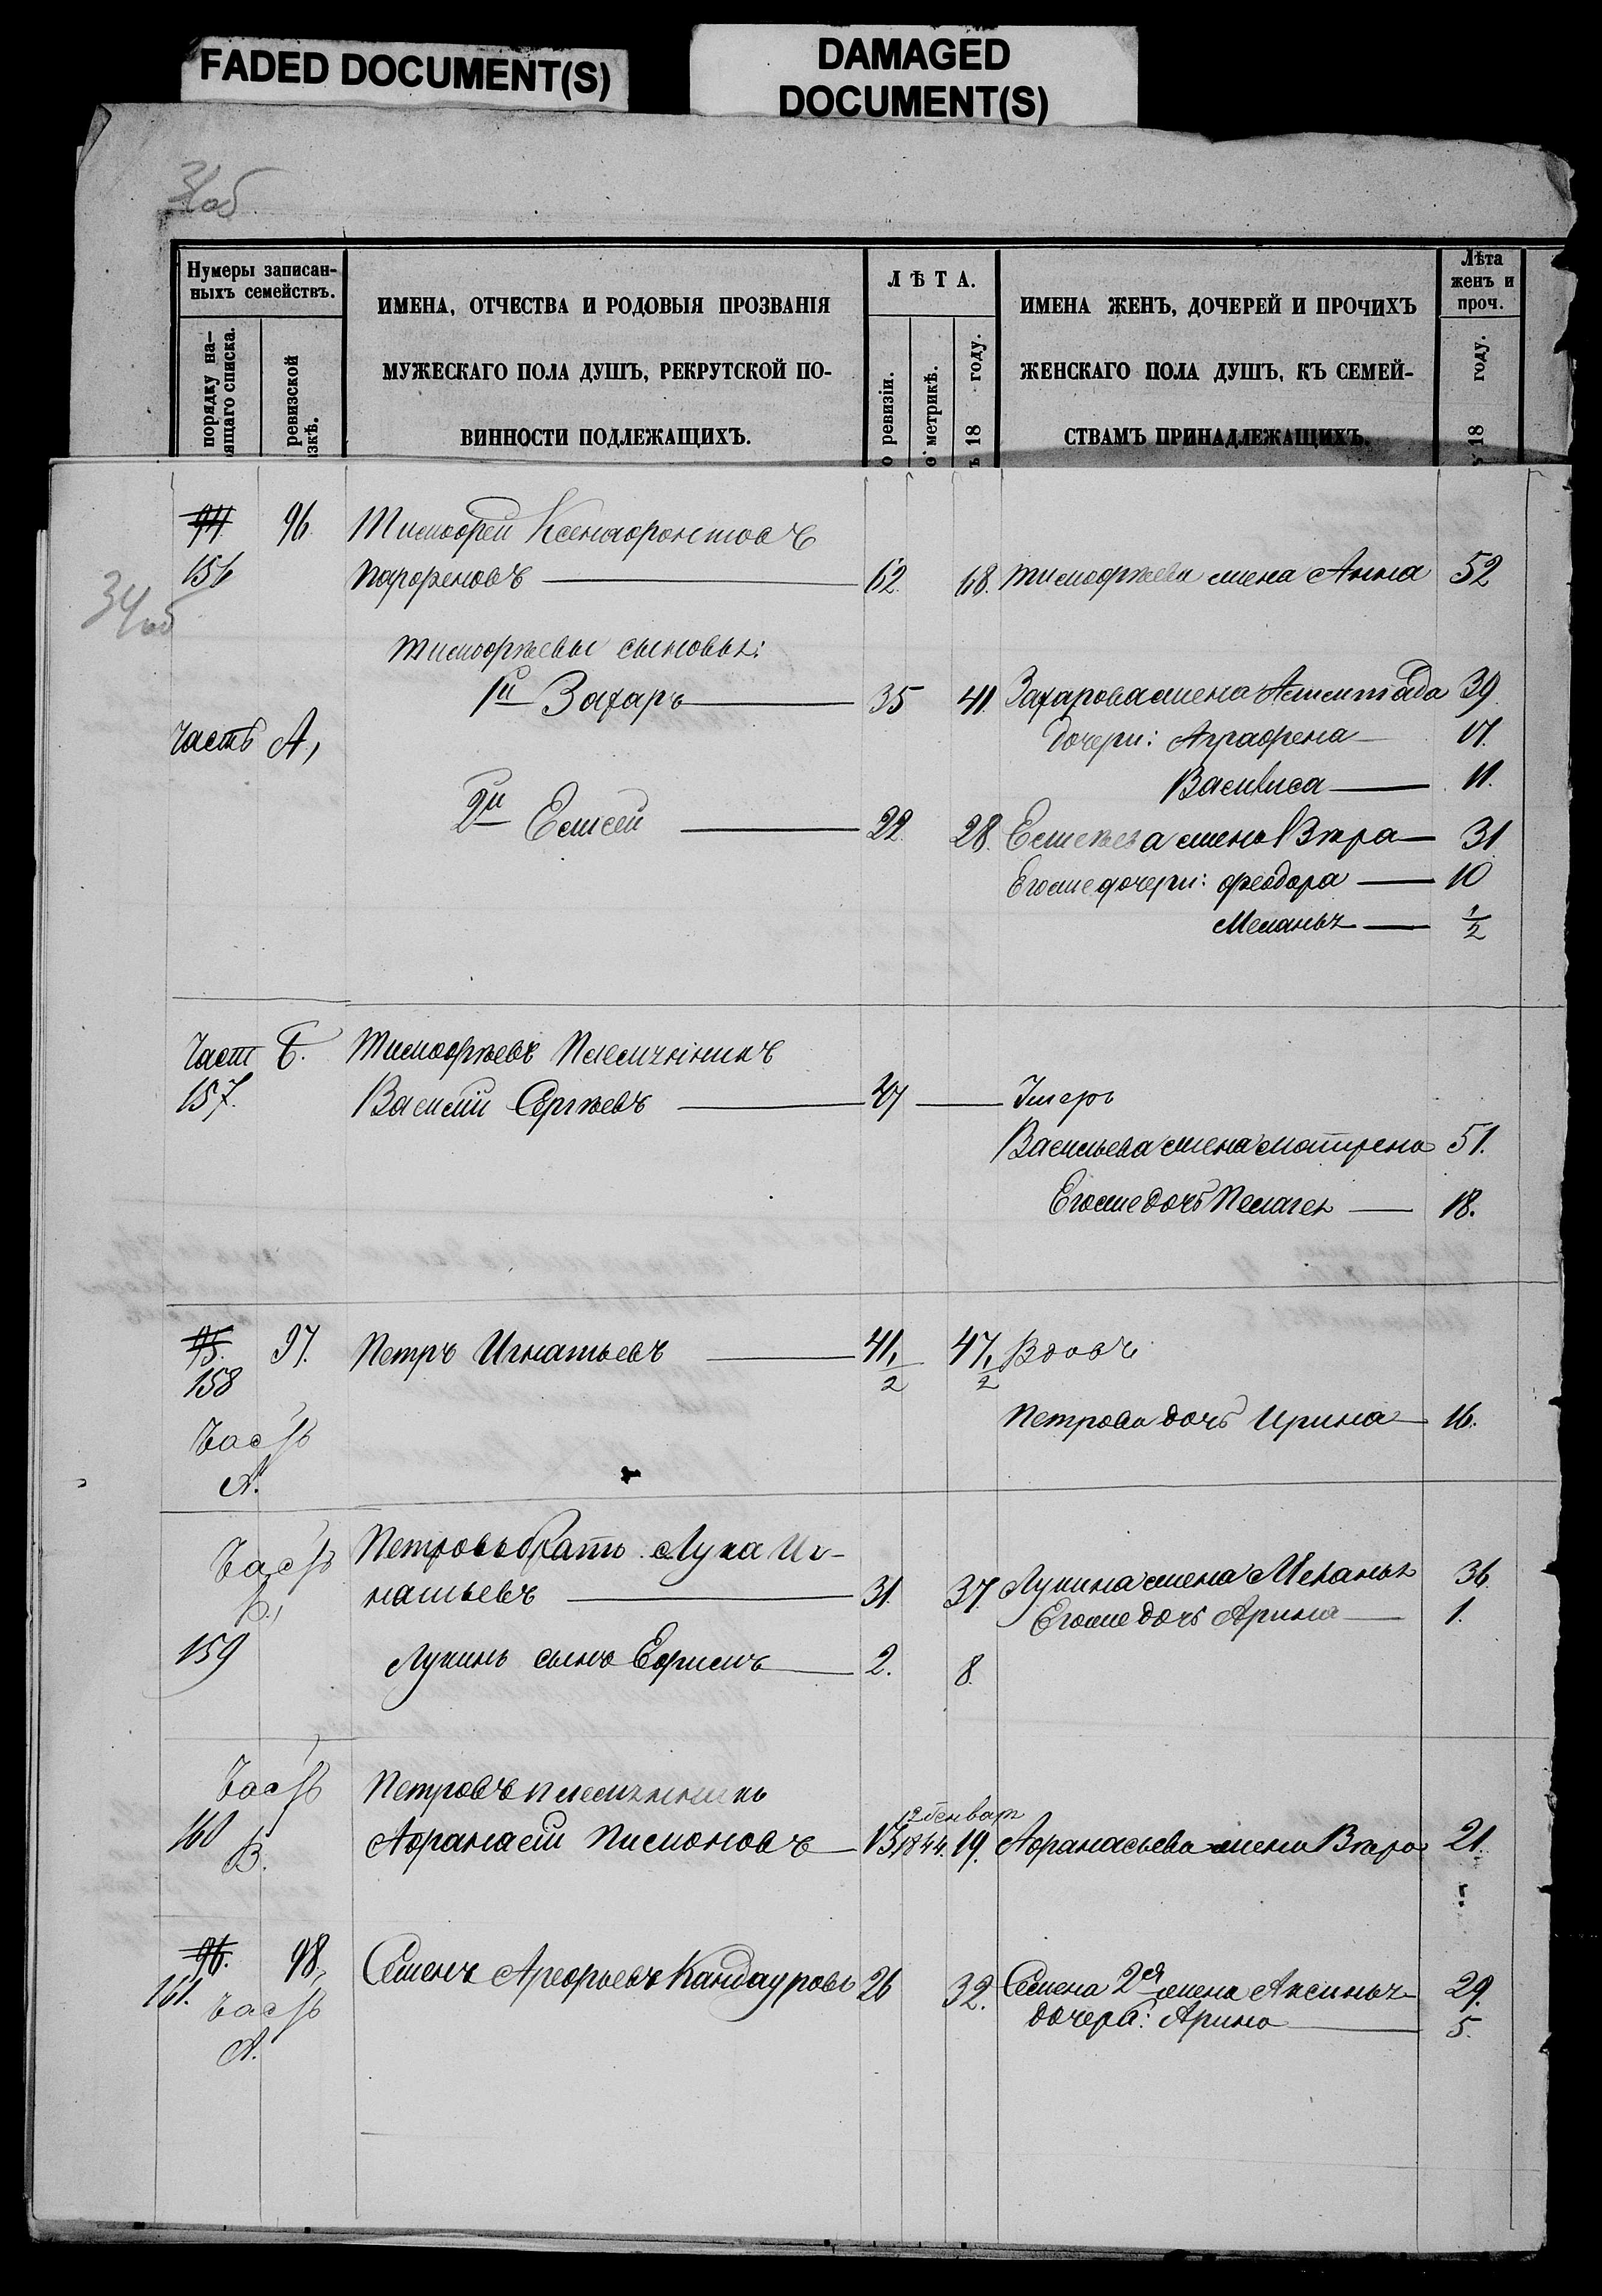 FADED DOCUMENT(S)
DAMAGED
DOCUMENT(S)
Нумеры записан-
ныхъ семействъ.
порядку на-
ящаго списка.
ревизской
зкѣ.
ИМЕНА, ОТЧЕСТВА И РОДОВЫЯ ПРОЗВАНІЯ
МУЖЕСКАГО ПОЛА ДУШЪ, РЕКРУТСКОЙ ПО-
ВИННОСТИ ПОДЛЕЖАЩИХЪ.
ЛѢТА.
о ревизіи.
о метрикѣ.
ъ 18 году.
ИМЕНА ЖЕНЪ, ДОЧЕРЕЙ И ПРОЧИХЪ
ЖЕНСКАГО ПОЛА ДУШЪ, КЪ СЕМЕЙ-
СТВАМЪ ПРИНАДЛЕЖАЩИХЪ.
Лѣта
женъ и
проч.
ъ 18 году.
94. 96. Тимофей Ксенафонтовъ
156 Парфеновъ 62. 68. Тимофѣева жена Анна 52
34об
Тимофѣевы сыновья:
1й Захаръ 35 41. Захарова жена 39
Часть А, дочери: Аграфена 17.
Василиса 11.
2й Елисей 22. 28. Елисѣева жена Вѣра 31
Его же дочери: Феодора 10
Меланья 1/2
Част Б. Тимофѣевъ племянникъ
157. Василій Сергѣевъ 47 Умеръ
Васильева жена Матрена 51.
Его же дочь Пелагея 18.
95. 97. Петръ Игнатьевъ 41 1/2 47 1/2 Вдовъ
158
Петрова дочь Ирина 16.
Часть
А.
Часть Петровъ братъ Лука Иг-
Б., натьевъ 31. 37. Лукина жена Меланья 36.
Его же дочь Арина 1.
159 Лукинъ сынъ Ефимъ 2. 8.
Часть Петровъ племянникъ
160 В. Афанасій Пимоновъ 13 1844. 19. Афанасьева жена Вѣра 21.
96. 98, Семенъ Арефьевъ Кандауровъ 26 32. Семена 2я жена Аксинья 29.
161. Часть дочерь: Арина 5.
А.